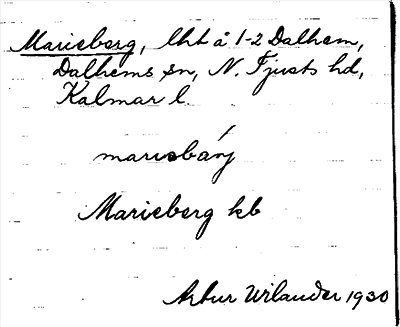 Marieberg, lht å 1-2 Dalhem,
Dalhems sn, N. Tjusts hd,
Kalmar l.
Marieberg kb
Artur Wilander 1930